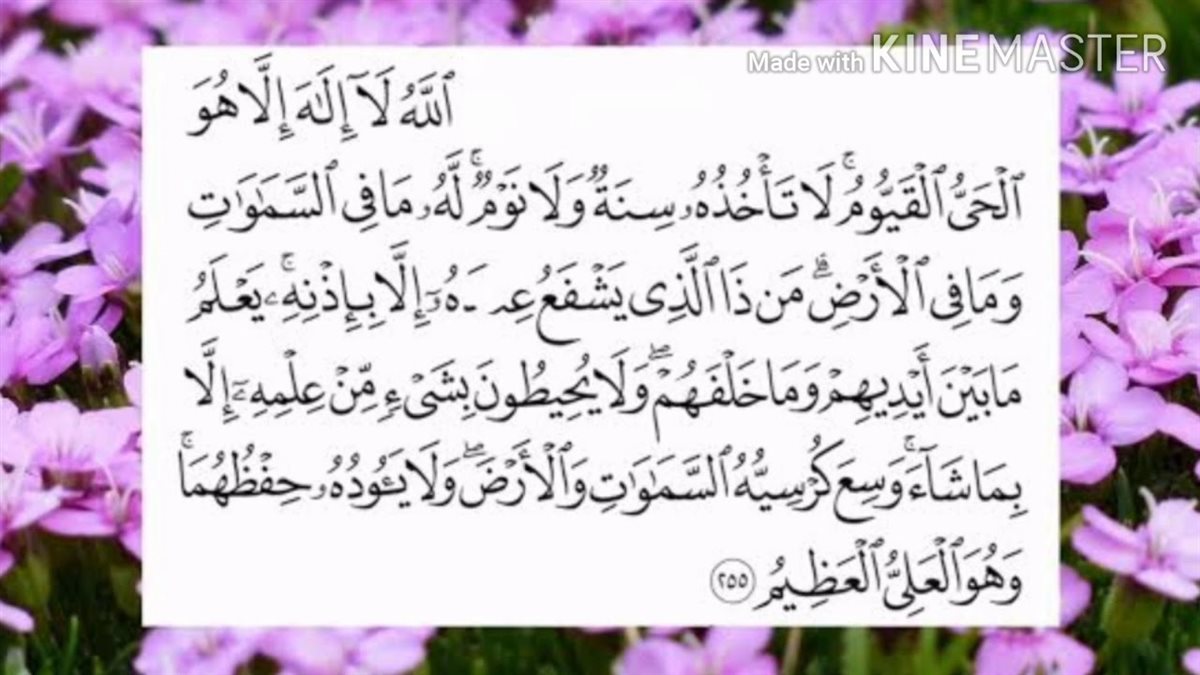 Made with KINEMASTER
ٱللَّهُ لَآ إِلَٰهَ إِلَّا هُوَ
ٱلْحَىُّ ٱلْقَيُّومُ ۚ لَا تَأْخُذُهُۥ سِنَةٌ وَلَا نَوْمٌ ۚ لَّهُۥ مَا فِى ٱلسَّمَٰوَٰتِ
وَمَا فِى ٱلْأَرْضِ ۗ مَن ذَا ٱلَّذِى يَشْفَعُ إِلَّا بِإِذْنِهِۦ ۚ يَعْلَمُ
مَا بَيْنَ أَيْدِيهِمْ وَمَا خَلْفَهُمْ ۖ وَلَا يُحِيطُونَ بِشَىْءٍ مِّنْ عِلْمِهِۦٓ إِلَّا
بِمَا شَآءَ ۚ وَسِعَ كُرْسِيُّهُ ٱلسَّمَٰوَٰتِ وَٱلْأَرْضَ ۖ وَلَا يَـُٔودُهُۥ حِفْظُهُمَا ۚ
وَهُوَ ٱلْعَلِىُّ ٱلْعَظِيمُ ٢٥٥